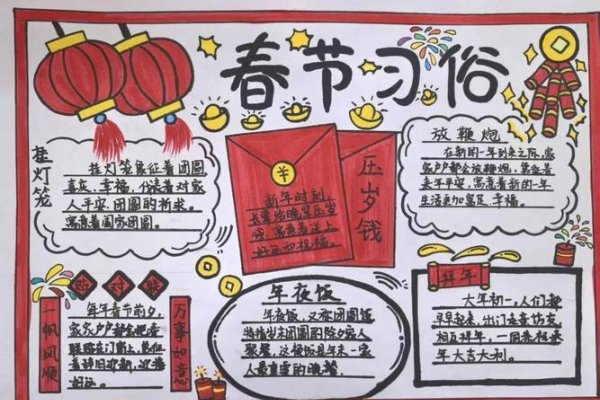 春节习俗
挂灯笼
挂灯笼象征着团圆
喜庆、幸福，代表着对家
人平安、团圆的祈求。
寓意着阖家团圆。
¥
新年时刻，
长辈给晚辈压岁
钱，寓意着送上
好运和祝福。
压岁钱
放鞭炮
在新的一年到来之际，家
家户户都会放鞭炮，
来年平安，寓意着新的一年
生活更加富足、幸福。
贴对联
一帆风顺
万事如意
每年春节前夕，
家家户户都会把春
联贴在门窗上，
着辞旧迎新，
好运。
年夜饭
年夜饭，又称团圆饭
特指岁末团圆的阖家人
聚餐，这顿饭是年末一家
人最重要的晚餐
拜年
大年初一，人们都
早早起来，出门走亲访友，
相互拜年，一同恭祝来
年大吉大利。